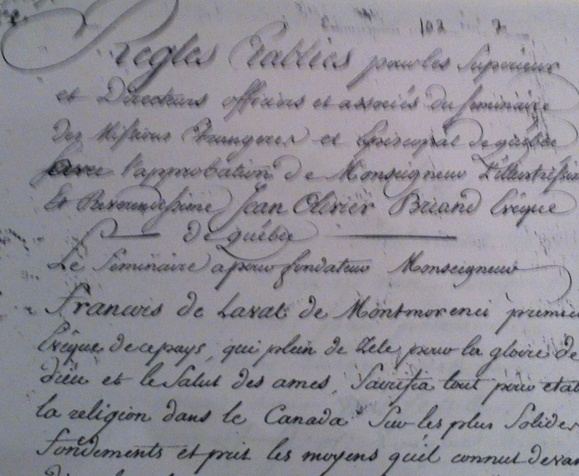 102
Regles Etablies pour les Superieurs
et Directeurs officiers et associés du Seminaire
des Missions Etrangeres et Episcopal de quebec
avec l'approbation de Monseigneur L'illustrissime
Et Reverendissime Jean Olivier Briand Evêque
de québec
Le Séminaire a pour fondateur Monseigneur
francois de Laval de Montmorenci premier
Evêque de ce pays, qui plein de Zele pour la gloire de
dieu et le Salut des ames, Sacrifia tout pour etab
la religion dans le Canada Sur les plus Solides
fondements et prit les moyens qu'il connut deva